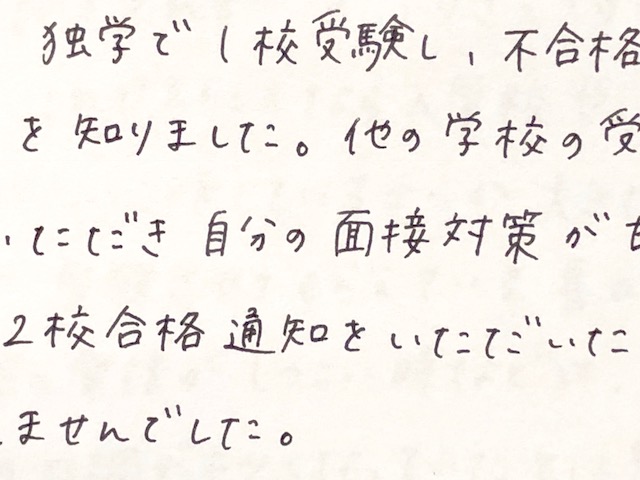 独学で1校受験し、不合格
を知りました。他の学校の受
いただき自分の面接対策が
2校合格通知をいただいた
ませんでした。